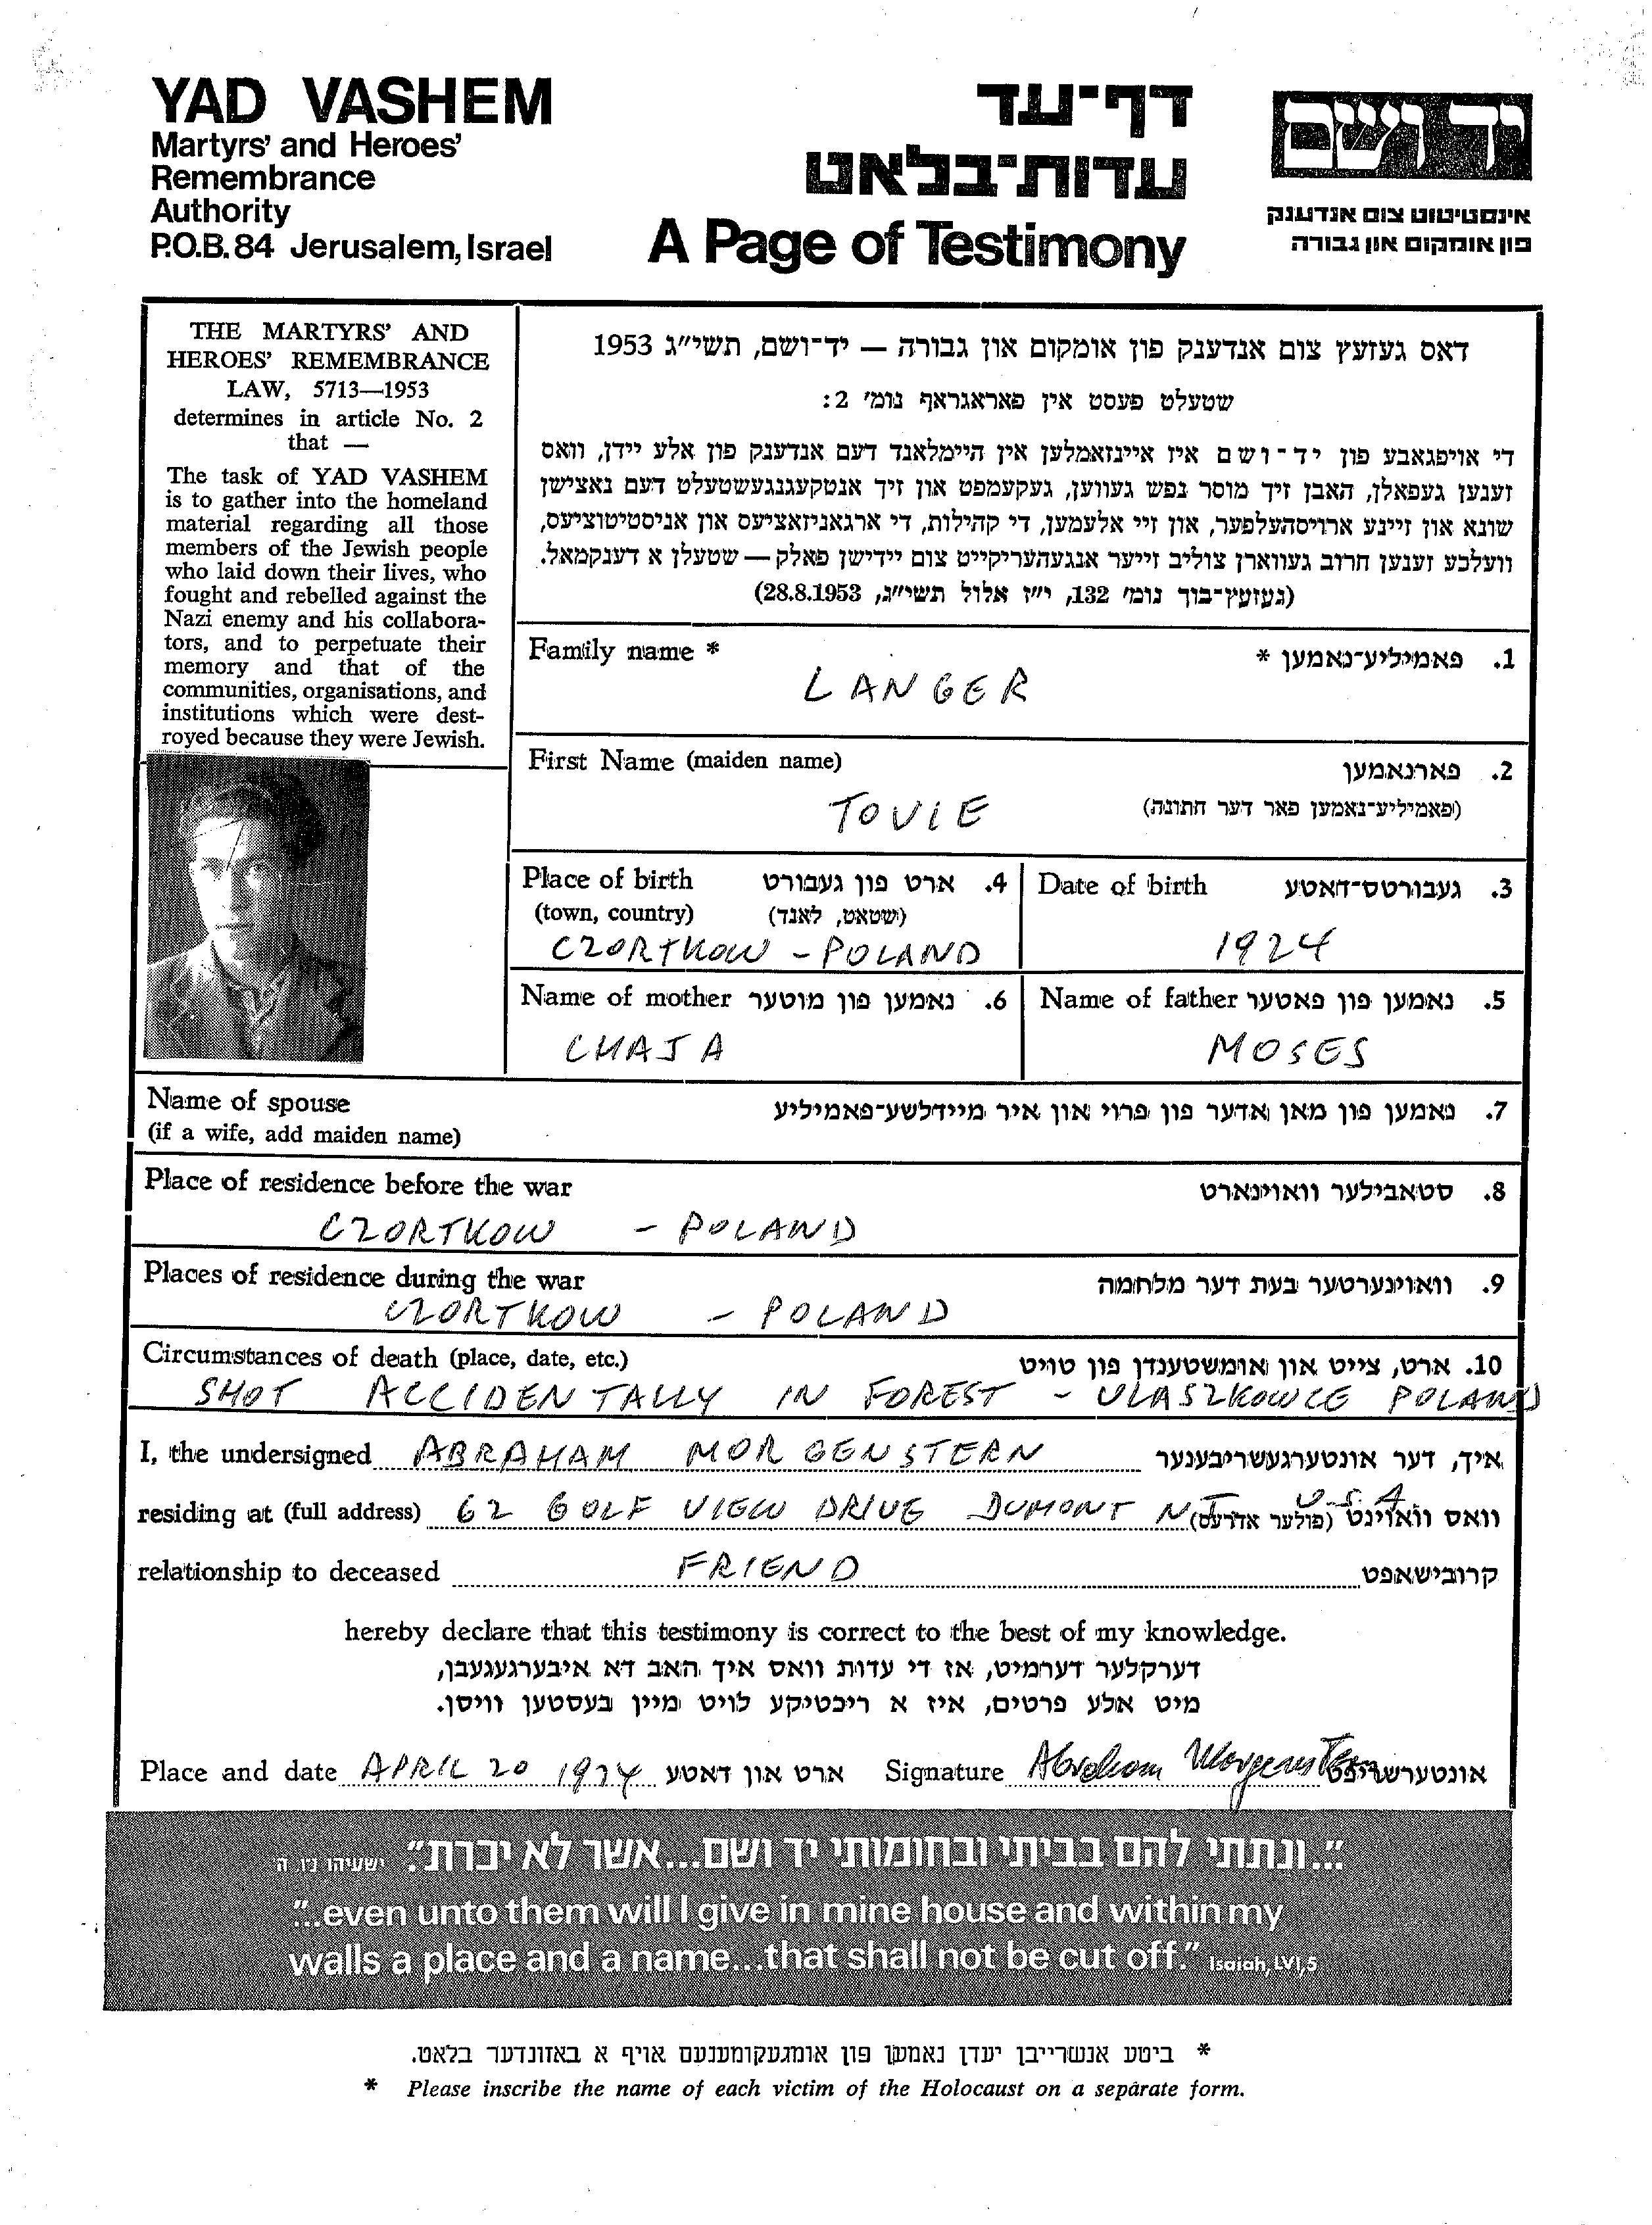 YAD VASHEM
Martyrs' and Heroes'
Remembrance
Authority
P.O.B. 84 Jerusalem, Israel
דף־עד
עדות־בלאט
A Page of Testimony
יד ושם
אינסטיטוט צום אנדענק
פון אומקום און גבורה
THE MARTYRS' AND
HEROES' REMEMBRANCE
LAW, 5713—1953
determines in article No. 2
that —
The task of YAD VASHEM
is to gather into the homeland
material regarding all those
members of the Jewish people
who laid down their lives, who
fought and rebelled against the
Nazi enemy and his collabora-
tors, and to perpetuate their
memory and that of the
communities, organisations, and
institutions which were dest-
royed because they were Jewish.
דאס געזעץ צום אנדענק פון אומקום און גבורה — יד־ושם, תשי״ג 1953
שטעלט פעסט אין פאראגראף נומ׳ 2:
די אויפגאבע פון יד־ושם איז איינזאמלען אין היימלאנד דעם אנדענק פון אלע יידן, וואס
זענען געפאלן, האבן זיך מוסר נפש געווען, געקעמפט און זיך אנטקעגנגעשטעלט דעם נאצישן
שונא און זיינע ארויסהעלפער, און זיי אלעמען, די קהילות, די ארגאניזאציעס און אניסטיטוציעס,
וועלכע זענען חרוב געווארן צוליב זייער אנגעהעריקייט צום יידישן פאלק — שטעלן א דענקמאל.
(געזעץ־בוך נומ׳ 132, י״ז אלול תשי״ג, 28.8.1953)
Family name * פאמיליע־נאמען * .1
LANGER
First Name (maiden name) פארנאמען .2
(פאמיליע־נאמען פאר דער חתונה)
TOVIE
Place of birth ארט פון געבורט .4
(town, country) (שטאט, לאנד)
CZORTKOW - POLAND
Date of birth געבורטס־דאטע .3
1924
Name of mother נאמען פון מוטער .6
CHAJA
Name of father נאמען פון פאטער .5
MOSES
Name of spouse נאמען פון מאן אדער פון פרוי און איר מיידלשע־פאמיליע .7
(if a wife, add maiden name)
Place of residence before the war סטאבילער וואוינארט .8
CZORTKOW - POLAND
Places of residence during the war וואוינערטער בעת דער מלחמה .9
CZORTKOW - POLAND
Circumstances of death (place, date, etc.) ארט, צייט און אומשטענדן פון טויט .10
SHOT ACCIDENTALLY IN FOREST - ULASZKOWCE POLAND
I, the undersigned ABRAHAM MORGENSTERN איך, דער אונטערגעשריבענער
residing at (full address) 62 GOLF VIEW DRIVE DUMONT NJ USA וואס וואוינט (פולער אדרעס)
relationship to deceased FRIEND קרובישאפט
hereby declare that this testimony is correct to the best of my knowledge.
דערקלער דערמיט, אז די עדות וואס איך האב דא איבערגעגעבן,
מיט אלע פרטים, איז א ריכטיקע לויט מיין בעסטען וויסן.
Place and date APRIL 20 1974 ארט און דאטע Signature Abraham Morgenstern אונטערשריפט
"...ונתתי להם בביתי ובחומותי יד ושם...אשר לא יכרת". ישעיהו נ״ו, ה׳
"...even unto them will I give in mine house and within my
walls a place and a name...that shall not be cut off." Isaiah, LVI, 5
* ביטע אנשרייבן יעדן נאמען פון אומגעקומענעם אויף א באזונדער בלאט.
* Please inscribe the name of each victim of the Holocaust on a separate form.